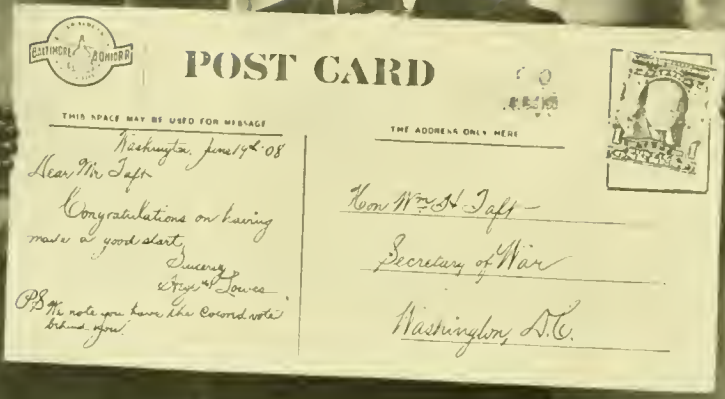 BALTIMORE
POST CARD
THIS SPACE MAY BE USED FOR MESSAGE
THE ADDRESS ONLY HERE
Washington, June 19th '08
Dear Mr Taft
Congratulations on having
made a good start,
Sincerely
Lowes
P.S. We note you have the Colored vote
behind you.
Hon Wm H. Taft
Secretary of War
Washington, D.C.
1
1